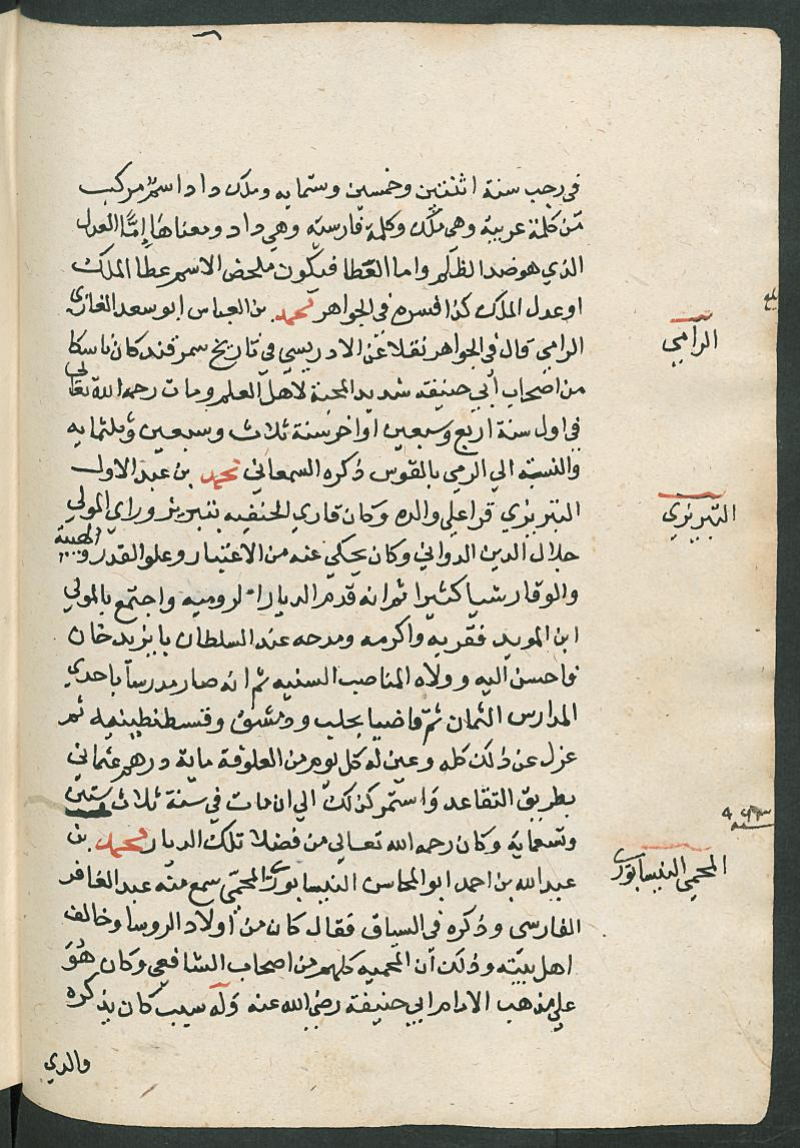 في رجب سنة اثنتين وخمسين وستمايه وملك داد اسم مركب
من كلمة عربية وهي ملك وكلمة فارسية وهي داد ومعناها إما العدل
الذي هو ضد الظلم واما العطا فيكون ملخص الاسم عطا الملك
او عدل الملك كذا فسره في الجواهر محمد بن العباس ابو سعد الغازي
الرامي
الرامي قال في الجواهر نقلا عن الادريسي في تاريخ سمرقند كان ناسكا
من اصحاب أبي حنيفه شديد المحبة لاهل العلم ومات رحمه الله تعالى
في اول سنة اربع وسبعين او اخر سنة ثلاث وسبعين وثلثمايه
والنسبة الي الرمي بالقوس ذكره السمعاني محمد بن عبد الاول
التبريزي
التبريزي قرا علي والده وكان قاري الحنفيه بتبريز وراي المولي
جلال الدين الدواني وكان يحكي عنه من الاعتبار وعلو القدر والهيبة
والوقار شيا كثيرا ثم انه قدم الديار الروميه واجتمع بالمولي
ابن المويد فقربه واكرمه ومدحه عند السلطان بايزيد خان
فاحسن اليه وولاه المناصب السنيه ثم انه صار مدرسا باحدي
المدارس الثمان ثم قاضيا بحلب ودمشق وقسطنطينيه ثم
عزل عن ذلك كله وعين له كل يوم من العلوفة ماية درهم عثماني
بطريق التقاعد واستمر كذلك الي ان مات في سنة ثلاث وستين
سنه ٩٦٣
وتسعمايه وكان رحمه الله تعالي من فضلا تلك الديار محمد بن
المحمي النيسابوري
عبد الله بن احمد ابو المحاسن النيسابوري المحمي سمع منه عبد الغافر
الفارسي وذكره في السياق فقال كان من اولاد الروسا وخالف
اهل بيته وذلك أن المحميه كلهم من اصحاب الشافعي وكان هو
علي مذهب الامام ابي حنيفة رضي الله عنه وله سبب كان يذكره
والدي